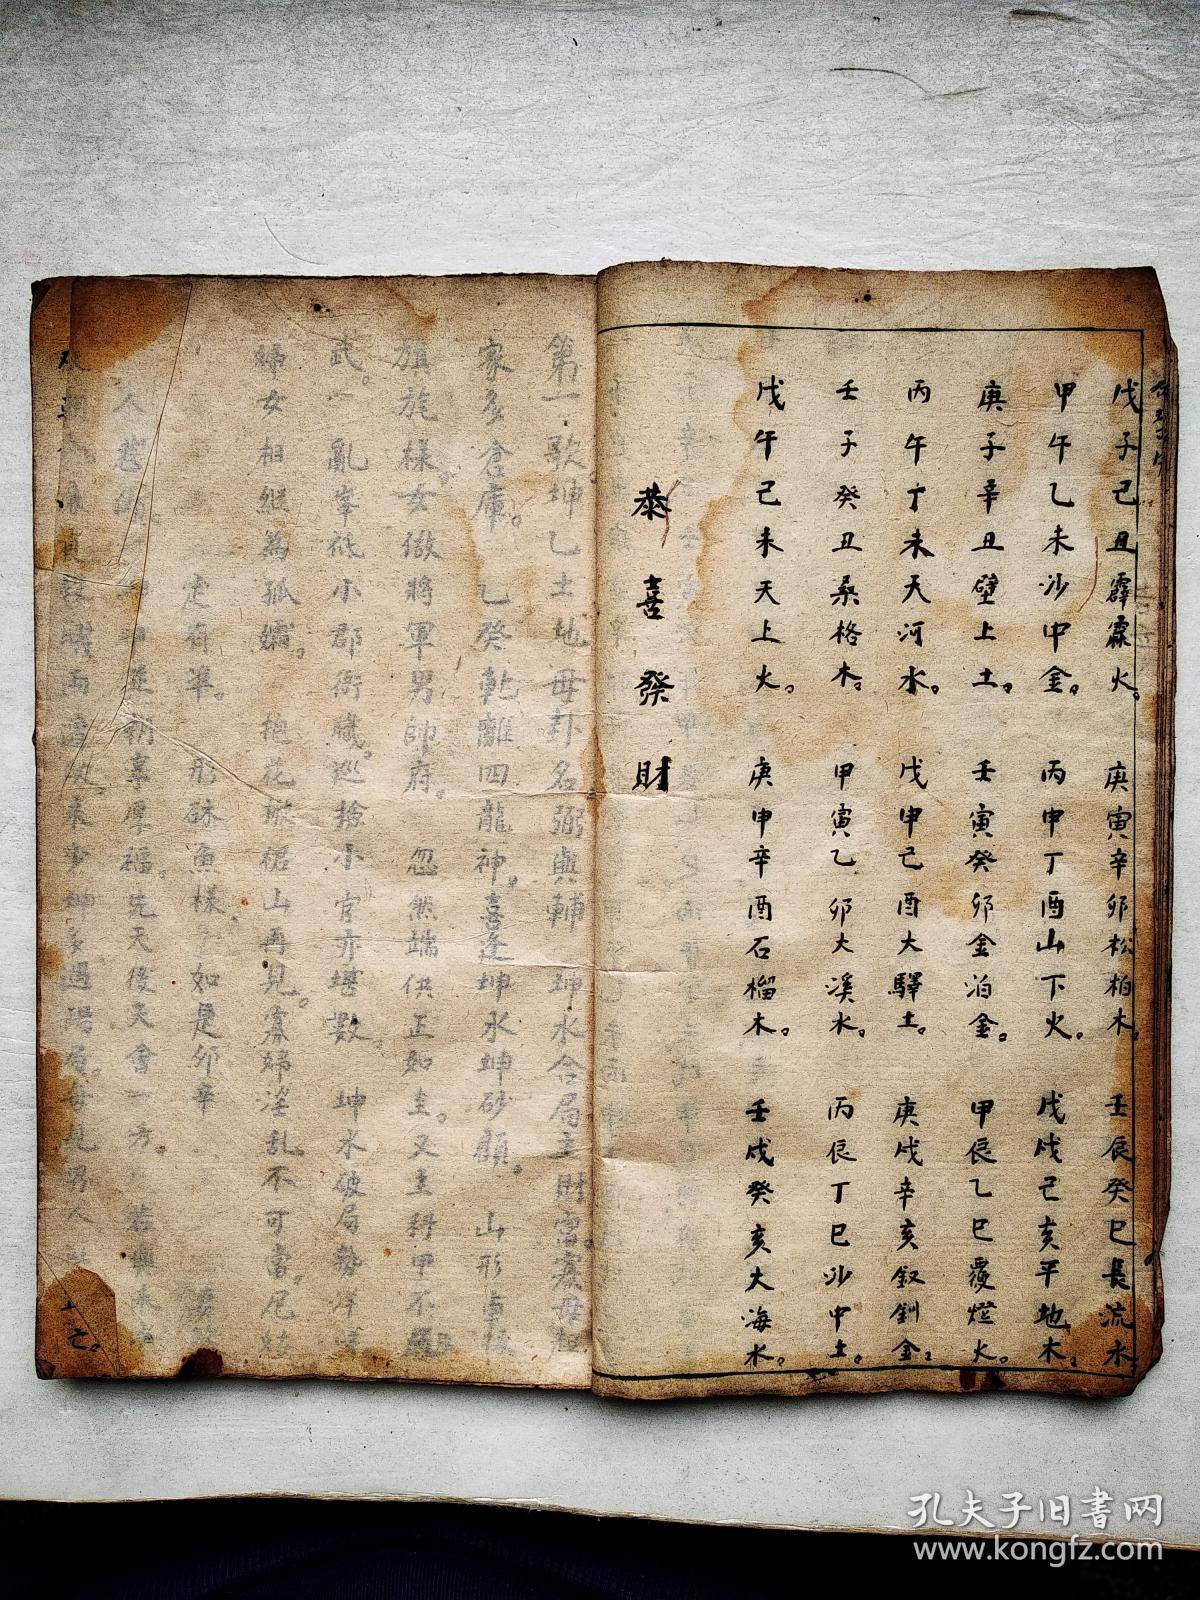 戊子己丑霹靂火。庚寅辛卯松柏木。壬辰癸巳長流水
甲午乙未沙中金。丙申丁酉山下火。戊戌己亥平地木。
庚子辛丑壁上土。壬寅癸卯金泊金。甲辰乙巳覆燈火。
丙午丁未天河水。戊申己酉大驛土。庚戌辛亥釵釧金。
壬子癸丑桑格木。甲寅乙卯大溪水。丙辰丁巳沙中土。
戊午己未天上火。庚申辛酉石榴木。壬戌癸亥大海水。
恭喜發財
第一歌坤乙土地母卦名弼與輔 坤水合局主財富寡母起
家多倉庫。乙癸乾離四龍神。喜逢坤水坤砂顧。山形
旗旄様女做將軍男帥府。忽然端供正如圭。又主科甲不
武。亂峯低小郡衙職。巡捨小官亦堪數 坤水破局勢
婦女相継為孤孀。抱花 裙山再見。寡婦淫乱不可當。尼姑
定有準。形砵魚様 如是卯辛
人悲 朝享厚福。先天後天會一方。若
雨 來 坤多遇 男人
亡。
孔夫子旧書网
www.kongfz.com